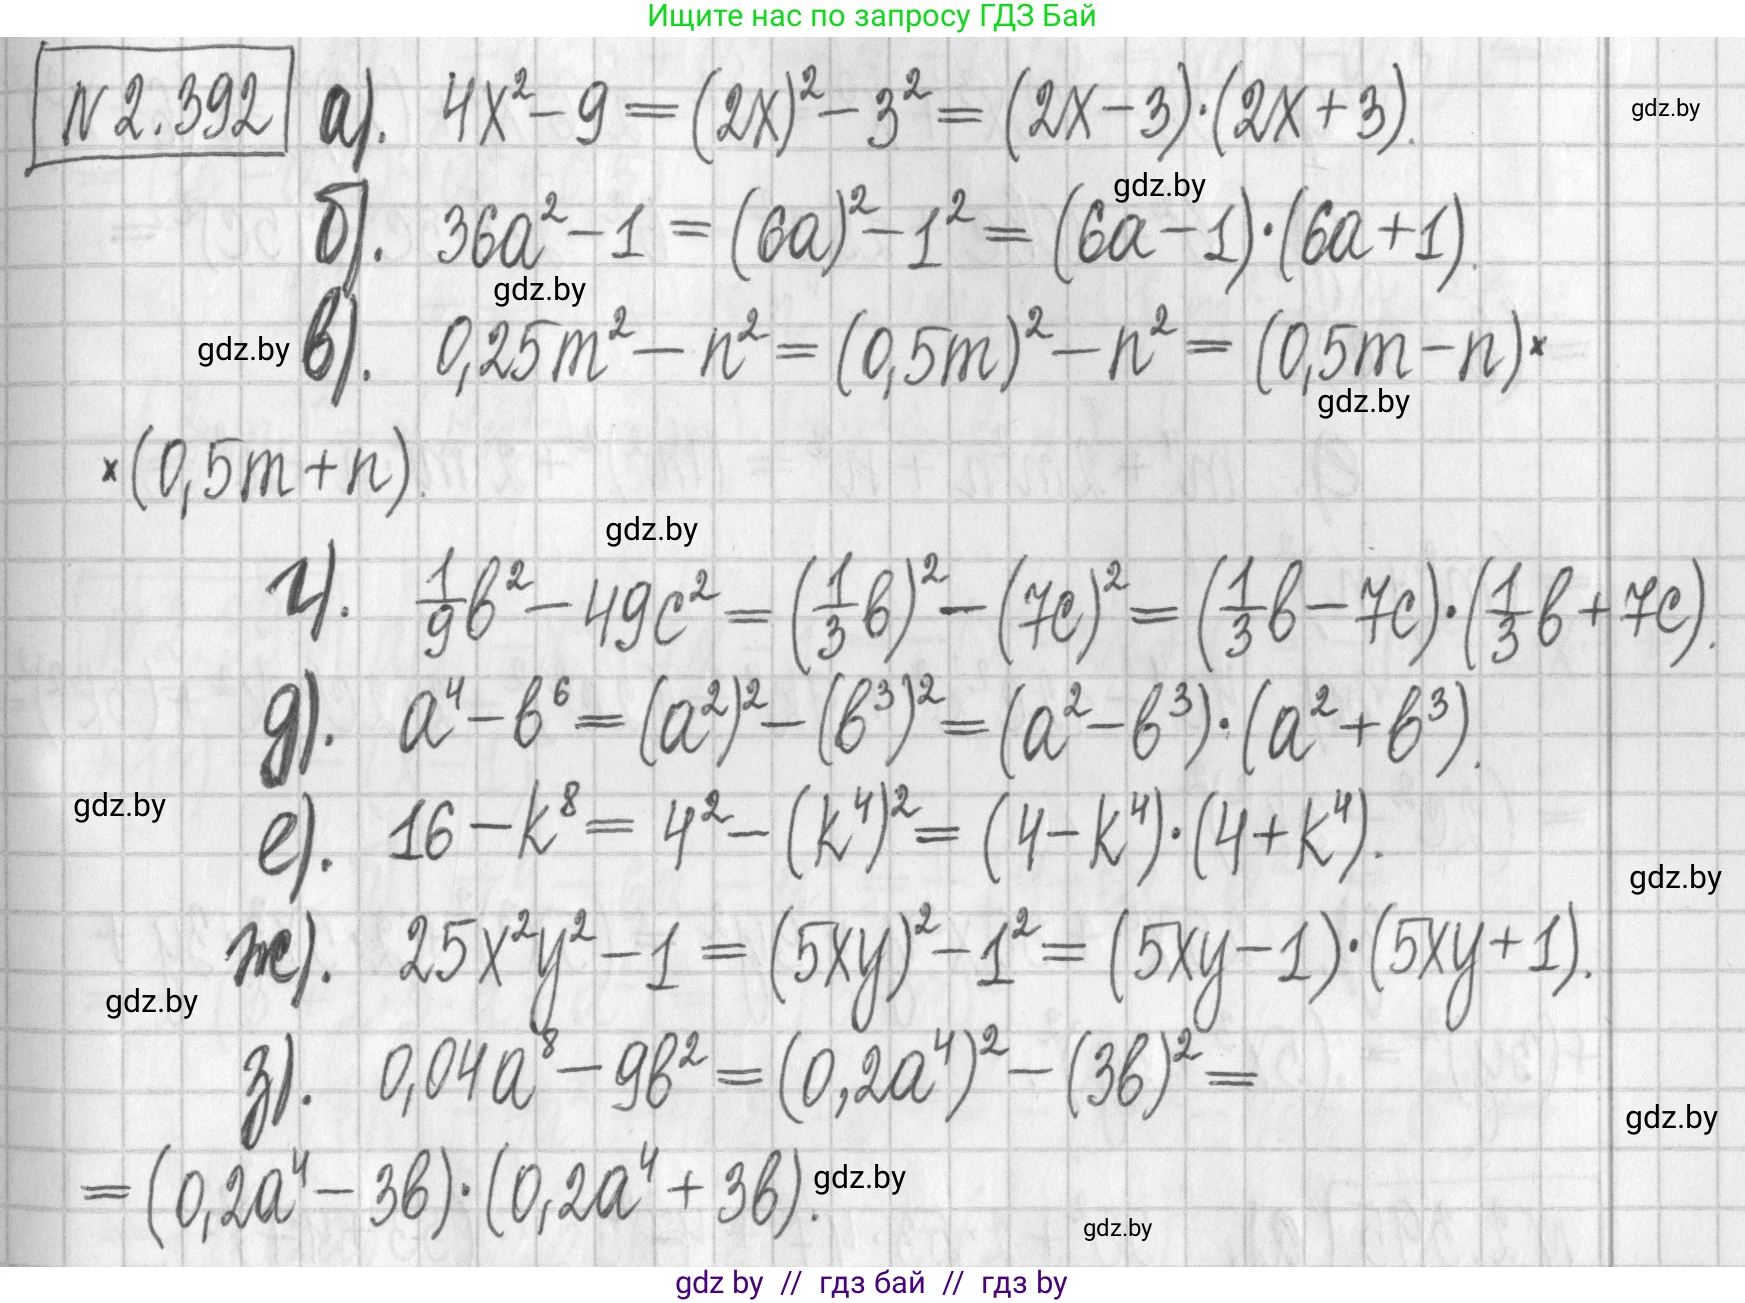 Ищите нас по запросу ГДЗ Бай
N 2.392 а). 4x² - 9 = (2x)² - 3² = (2x - 3)·(2x + 3).
gdz.by
gdz.by
б). 36a² - 1 = (6a)² - 1² = (6a - 1)·(6a + 1).
gdz.by
gdz.by
в). 0,25m² - n² = (0,5m)² - n² = (0,5m - n)×
gdz.by
×(0,5m + n).
gdz.by
г). 1/9 b² - 49c² = (1/3 b)² - (7c)² = (1/3 b - 7c)·(1/3 b + 7c).
д). a⁴ - b⁶ = (a²)² - (b³)² = (a² - b³)·(a² + b³).
gdz.by
е). 16 - k⁸ = 4² - (k⁴)² = (4 - k⁴)·(4 + k⁴).
gdz.by
ж). 25x²y² - 1 = (5xy)² - 1² = (5xy - 1)·(5xy + 1).
gdz.by
з). 0,04a⁸ - 9b² = (0,2a⁴)² - (3b)² =
gdz.by
= (0,2a⁴ - 3b)·(0,2a⁴ + 3b).
gdz.by
gdz.by
gdz by // гдз бай // гдз by